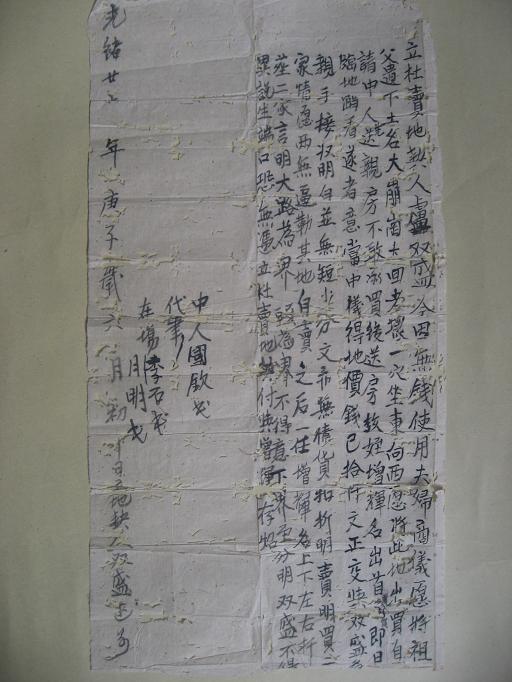 立杜賣地契人盧双盛今因無錢使用夫婦商議愿將祖
父遺下土名大崩崗 一穴坐東向西愿將此地出賣自
請中人送親房不敢承買後送房 姪增輝名出首 即日
臨地踏看遂者意當中議得地價錢 文正交與双盛
親手接收明白並無短少分文亦無債貨扣折明賣明買二
家情愿两無逼勒其地自賣之后一任增輝名上下左右
二家言明大路為界 為界不得 界至分明双盛不得
異說生端口恐無憑立杜賣地契付與增輝存炤
中人國啟
代筆
在塲李石
月明
光緒廿六年庚子歲六月初 日立地契人双盛